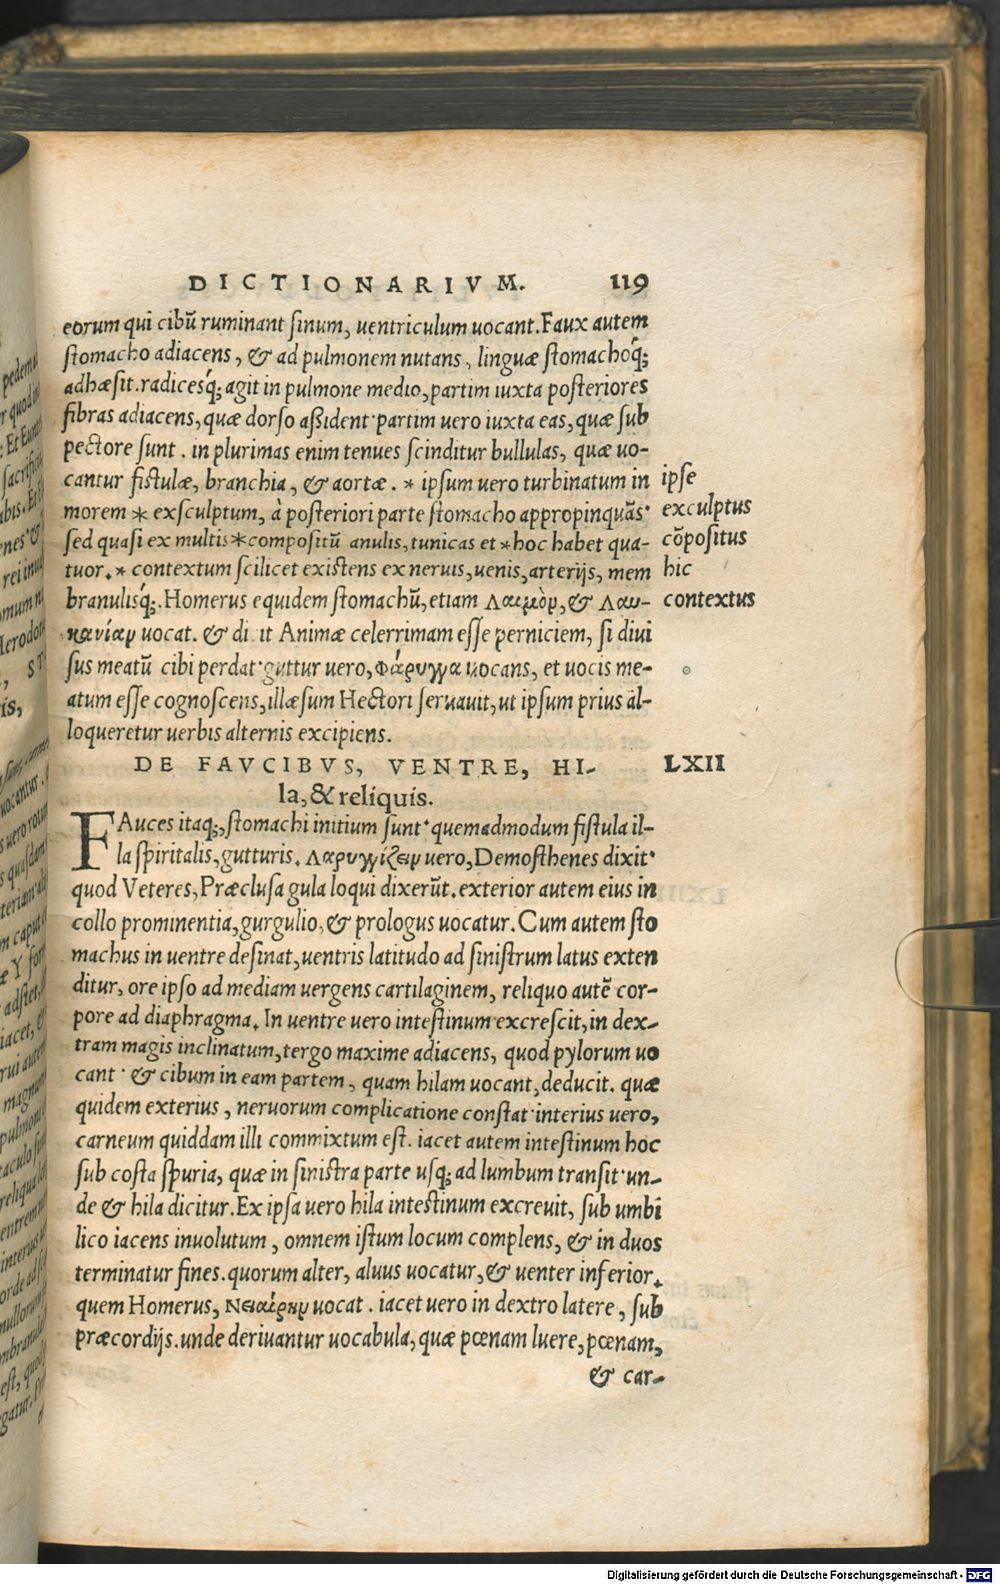 DICTIONARIVM. 119
eorum qui cibū ruminant sinum, uentriculum uocant. Faux autem
stomacho adiacens, & ad pulmonem nutans, linguæ stomachoq́;
adhæsit. radicesq́; agit in pulmone medio, partim iuxta posteriores
fibras adiacens, quæ dorso aßident· partim uero iuxta eas, quæ sub
pectore sunt. in plurimas enim tenues scinditur bullulas, quæ uo-
cantur fistulæ, branchia, & aortæ. * ipsum uero turbinatum in ipse
morem * exsculptum, à posteriori parte stomacho appropinquās· exculptus
sed quasi ex multis * compositū anulis, tunicas et * hoc habet qua- cōpositus
tuor. * contextum scilicet existens ex neruis, uenis, arterijs, mem hic
branulisq́;. Homerus equidem stomachū, etiam Λαιμὸρ, & Λαυ- contextus
κανίαρ uocat. & di it Animæ celerrimam esse perniciem, si diui
sus meatū cibi perdat· guttur uero, Φάρυγγα uocans, et uocis me-
atum esse cognoscens, illæsum Hectori seruauit, ut ipsum prius al-
loqueretur uerbis alternis excipiens.
DE FAVCIBVS, VENTRE, HI- LXII
la, & reliquis.
FAuces itaq;, stomachi initium sunt· quemadmodum fistula il-
la spiritalis, gutturis. Λαρυγγίζειρ uero, Demosthenes dixit·
quod Veteres, Præclusa gula loqui dixerūt. exterior autem eius in
collo prominentia, gurgulio, & prologus uocatur. Cum autem sto
machus in uentre desinat, uentris latitudo ad sinistrum latus exten
ditur, ore ipso ad mediam uergens cartilaginem, reliquo autē cor-
pore ad diaphragma. In uentre uero intestinum excrescit, in dex-
tram magis inclinatum, tergo maxime adiacens, quod pylorum uo
cant· & cibum in eam partem, quam hilam uocant, deducit. quæ
quidem exterius, neruorum complicatione constat· interius uero,
carneum quiddam illi commixtum est. iacet autem intestinum hoc
sub costa spuria, quæ in sinistra parte usq; ad lumbum transit· un-
de & hila dicitur. Ex ipsa uero hila intestinum excreuit, sub umbi
lico iacens inuolutum, omnem istum locum complens, & in duos
terminatur fines. quorum alter, aluus uocatur, & uenter inferior.
quem Homerus, Νειαίρηρ uocat. iacet uero in dextro latere, sub
præcordijs. unde deriuantur uocabula, quæ pœnam luere, pœnam,
& car-
Digitalisierung gefördert durch die Deutsche Forschungsgemeinschaft - DFG